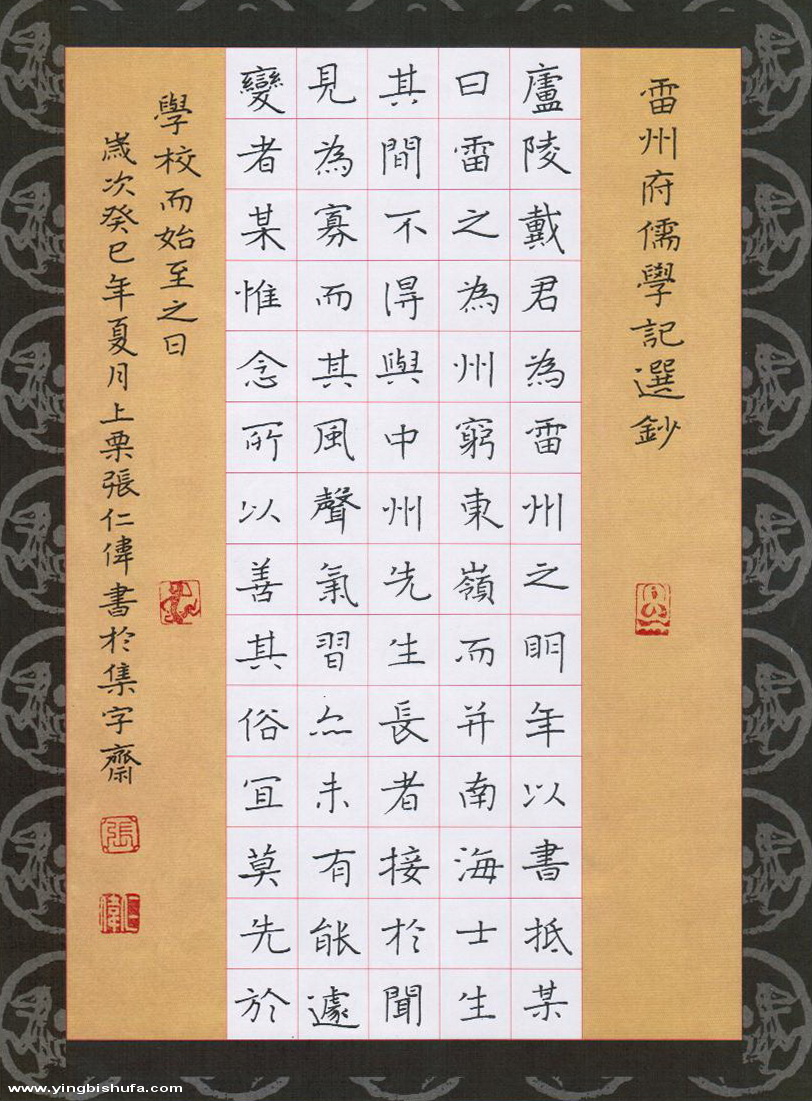 雷州府儒學記選鈔
廬陵戴君為雷州之明年以書抵某
曰雷之為州窮東嶺而并南海士生
其間不得與中州先生長者接於聞
見為寡而其風聲氣習亦未有能遽
變者某惟念所以善其俗宜莫先於
學校而始至之日
歲次癸巳年夏月上栗張仁偉書於集字齋
張
仁偉
www.yingbishufa.com